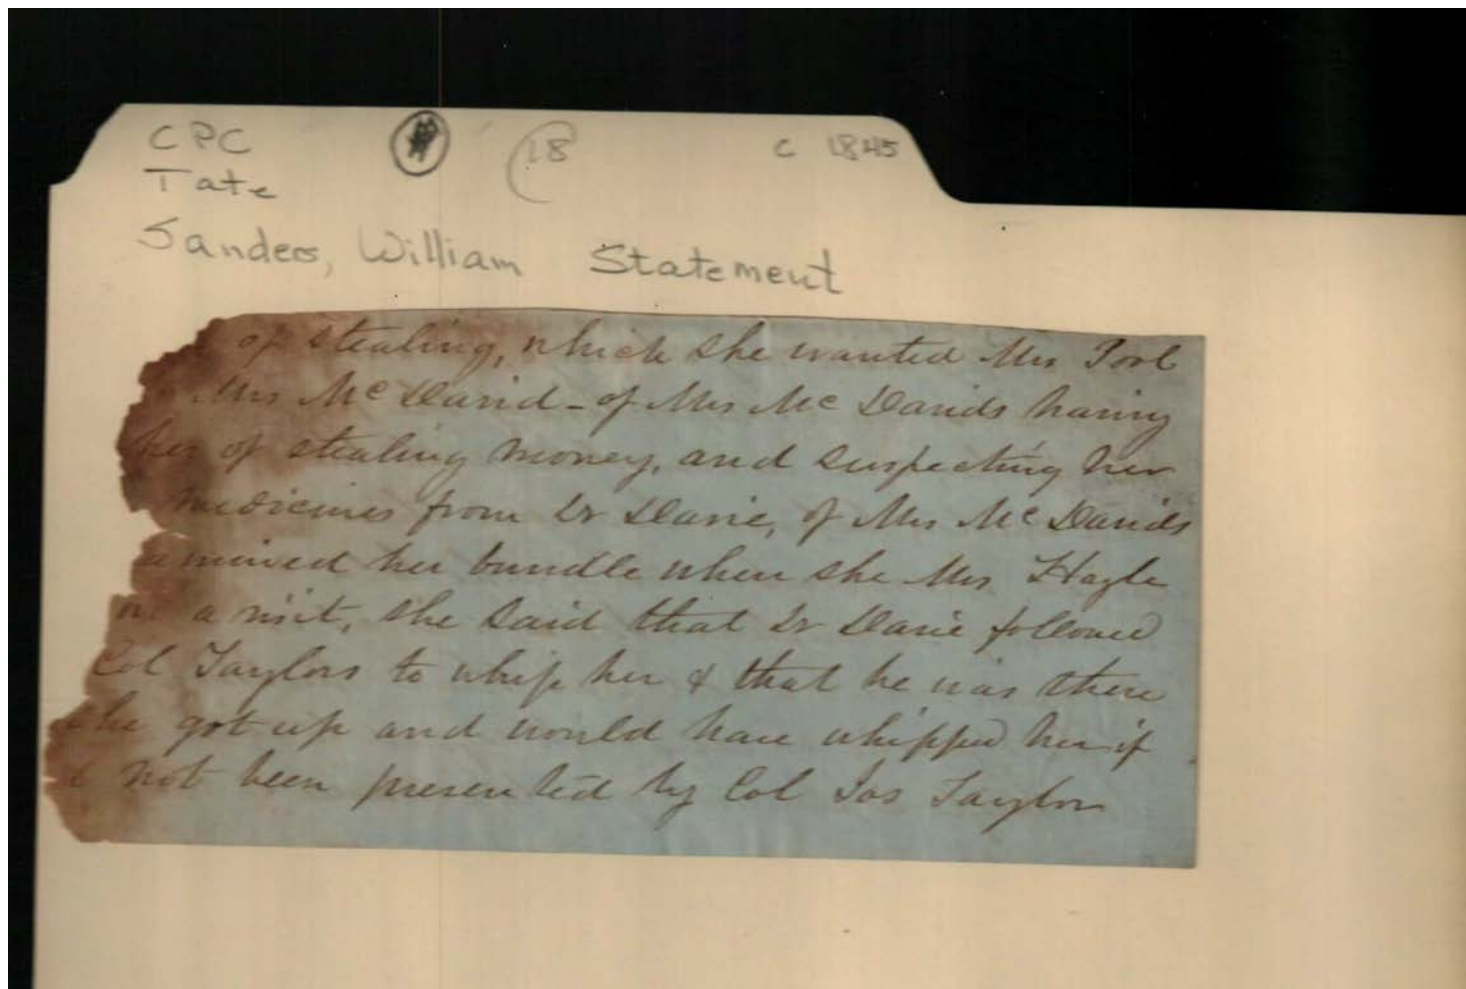 CPC
18
c 1845
Tate
Sanders, William Statement
of stealing, which she wanted Mrs
Mrs McDavid - of Mrs McDavids having
her of stealing money, and suspecting her
medicines from Dr Davie, of Mrs McDavids
amined her bundle when she Mrs Hagle
on a visit, she said that Dr Davie followed
Col Taylors to whip her & that he was there
she got up and would have whipped her if
not been prevented by Col Jas Taylor